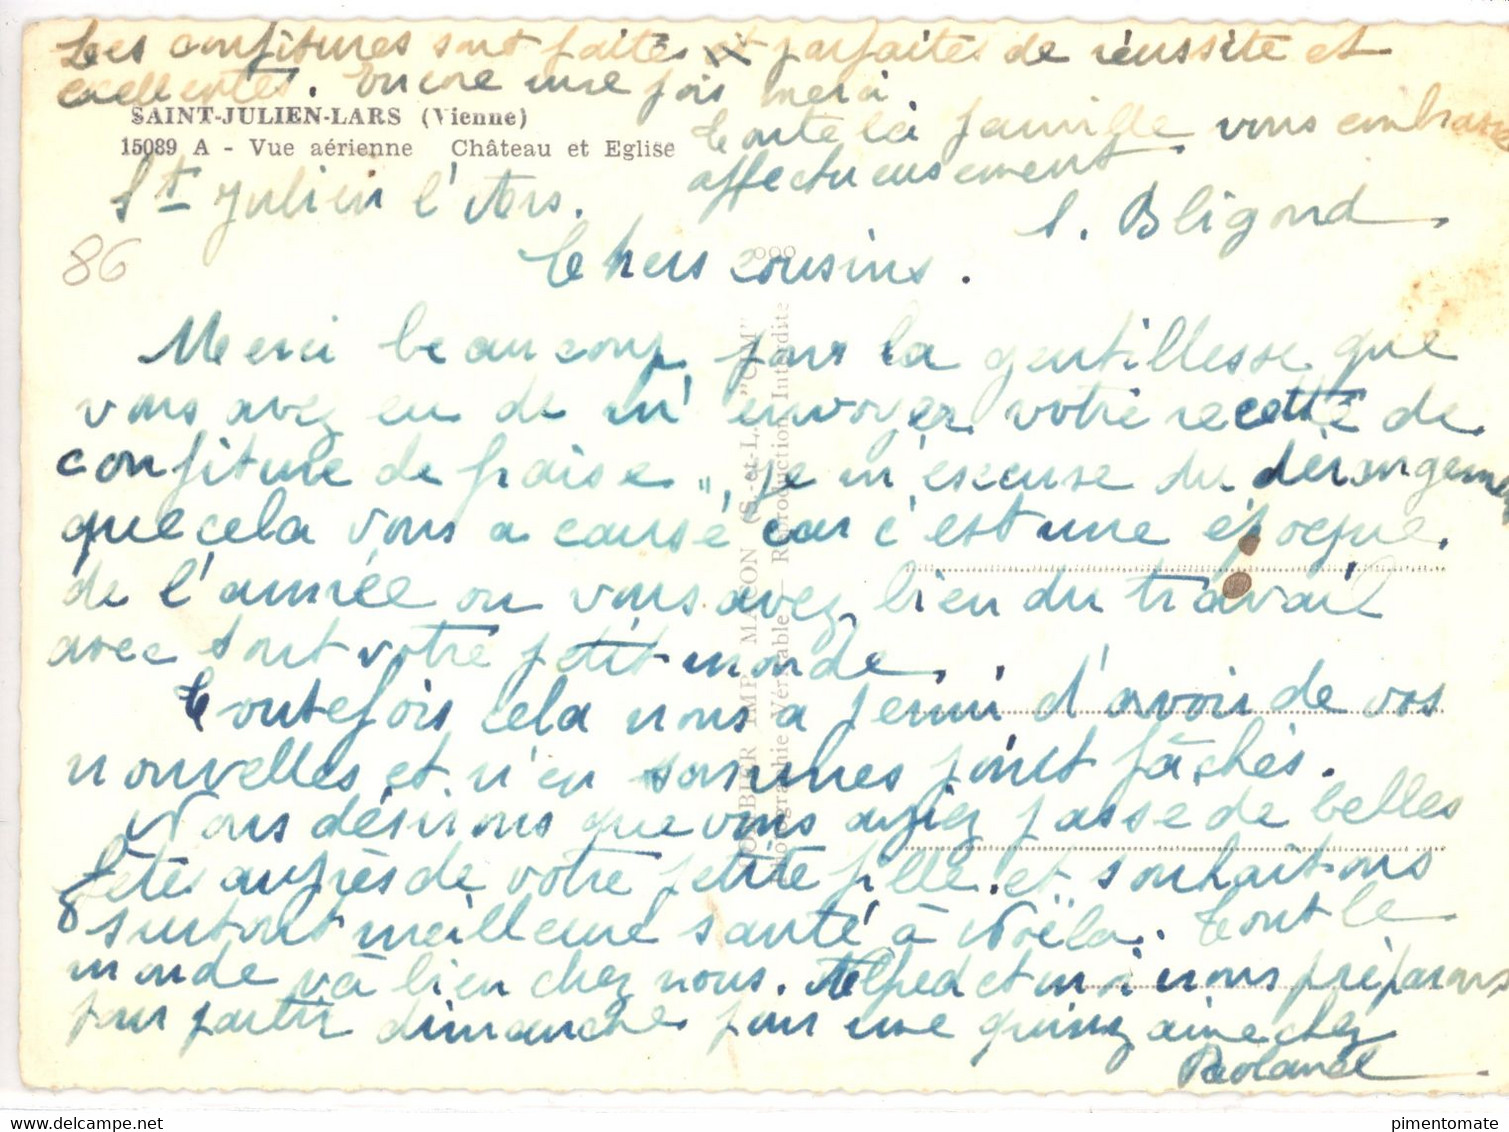 Les confitures sont faites parfaites de réussite et
excellentes. Encore une fois merci.
SAINT-JULIEN-LARS (Vienne)
15089 A - Vue aérienne Château et Eglise
Toute la famille vous embrasse
affectueusement
St Julien l'Ars.
S. Bligond
86
Chers cousins.
Merci beaucoup pour la gentillesse que
vous avez eu de m'envoyer votre recette de
confiture de fraise", je m'excuse du dérangement
que cela vous a causé car c'est une époque
de l'année ou vous avez bien du travail
avec tout votre petit monde.
Toutefois cela nous a permi d'avoir de vos
nouvelles et n'en sommes point fâchés.
Nous désirons que vous ayiez passé de belles
fêtes auprès de votre petite fille et souhaitons
surtout meilleure santé à Noëla. Tout le
monde va bien chez nous. et moi nous préparons
pour partir dimanche pour une quinzaine chez
Roland
COMBIER IMP. MACON (S.-et-L.) "CIM"
Photographie Véritable - Reproduction Interdite
pimentomate